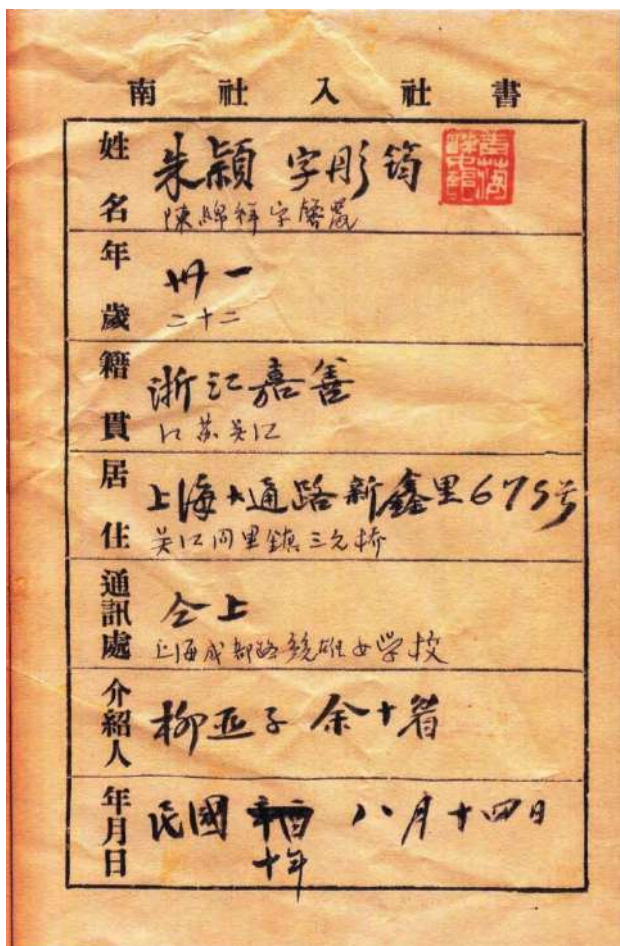 南社入社書
姓名
朱穎 字彤筠
陳綿祥字馨麗
年歲
卅一
二十二
籍貫
浙江嘉善
江蘇吴江
居住
上海大通路新鑫里675号
吴江同里鎮三元橋
通訊處
仝上
上海成都路競雄女学校
介紹人
柳亞子 余十眉
年月日
民國 辛酉 八月十四日
十年